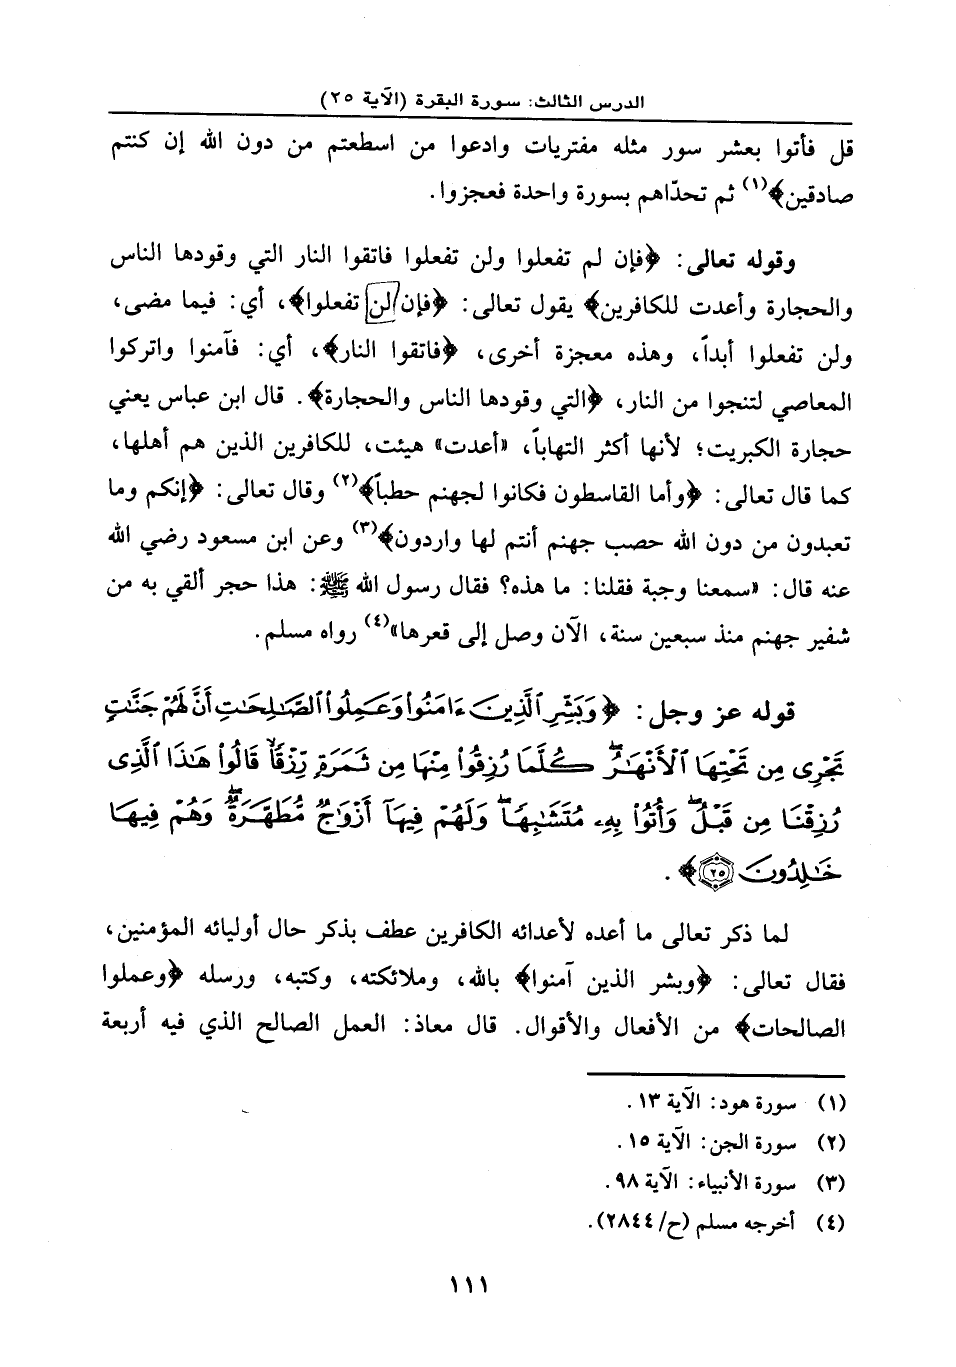 الدرس الثالث: سورة البقرة (الآية ٢٥)
قل فأتوا بعشر سور مثله مفتريات وادعوا من اسطعتم من دون الله إن كنتم
صادقين﴾(١) ثم تحدّاهم بسورة واحدة فعجزوا.
وقوله تعالى: ﴿فإن لم تفعلوا ولن تفعلوا فاتقوا النار التي وقودها الناس
والحجارة وأعدت للكافرين﴾ يقول تعالى: ﴿فإن لن تفعلوا﴾، أي: فيما مضى،
ولن تفعلوا أبداً، وهذه معجزة أخرى، ﴿فاتقوا النار﴾، أي: فآمنوا واتركوا
المعاصي لتنجوا من النار، ﴿التي وقودها الناس والحجارة﴾. قال ابن عباس يعني
حجارة الكبريت؛ لأنها أكثر التهاباً، «أعدت» هيئت، للكافرين الذين هم أهلها،
كما قال تعالى: ﴿وأما القاسطون فكانوا لجهنم حطباً﴾(٢) وقال تعالى: ﴿إنكم وما
تعبدون من دون الله حصب جهنم أنتم لها واردون﴾(٣) وعن ابن مسعود رضي الله
عنه قال: «سمعنا وجبة فقلنا: ما هذه؟ فقال رسول الله ﷺ: هذا حجر ألقي به من
شفير جهنم منذ سبعين سنة، الآن وصل إلى قعرها»(٤) رواه مسلم.
قوله عز وجل: ﴿وَبَشِّرِ ٱلَّذِينَ ءَامَنُوا۟ وَعَمِلُوا۟ ٱلصَّـٰلِحَـٰتِ أَنَّ لَهُمْ جَنَّـٰتٍ
تَجْرِى مِن تَحْتِهَا ٱلْأَنْهَـٰرُ ۖ كُلَّمَا رُزِقُوا۟ مِنْهَا مِن ثَمَرَةٍ رِّزْقًا ۙ قَالُوا۟ هَـٰذَا ٱلَّذِى
رُزِقْنَا مِن قَبْلُ ۖ وَأُتُوا۟ بِهِۦ مُتَشَـٰبِهًا ۖ وَلَهُمْ فِيهَآ أَزْوَٰجٌ مُّطَهَّرَةٌ ۖ وَهُمْ فِيهَا
خَـٰلِدُونَ ٢٥﴾.
لما ذكر تعالى ما أعده لأعدائه الكافرين عطف بذكر حال أوليائه المؤمنين،
فقال تعالى: ﴿وبشر الذين آمنوا﴾ بالله، وملائكته، وكتبه، ورسله ﴿وعملوا
الصالحات﴾ من الأفعال والأقوال. قال معاذ: العمل الصالح الذي فيه أربعة
(١) سورة هود: الآية ١٣.
(٢) سورة الجن: الآية ١٥.
(٣) سورة الأنبياء: الآية ٩٨.
(٤) أخرجه مسلم (ح/٢٨٤٤).
١١١